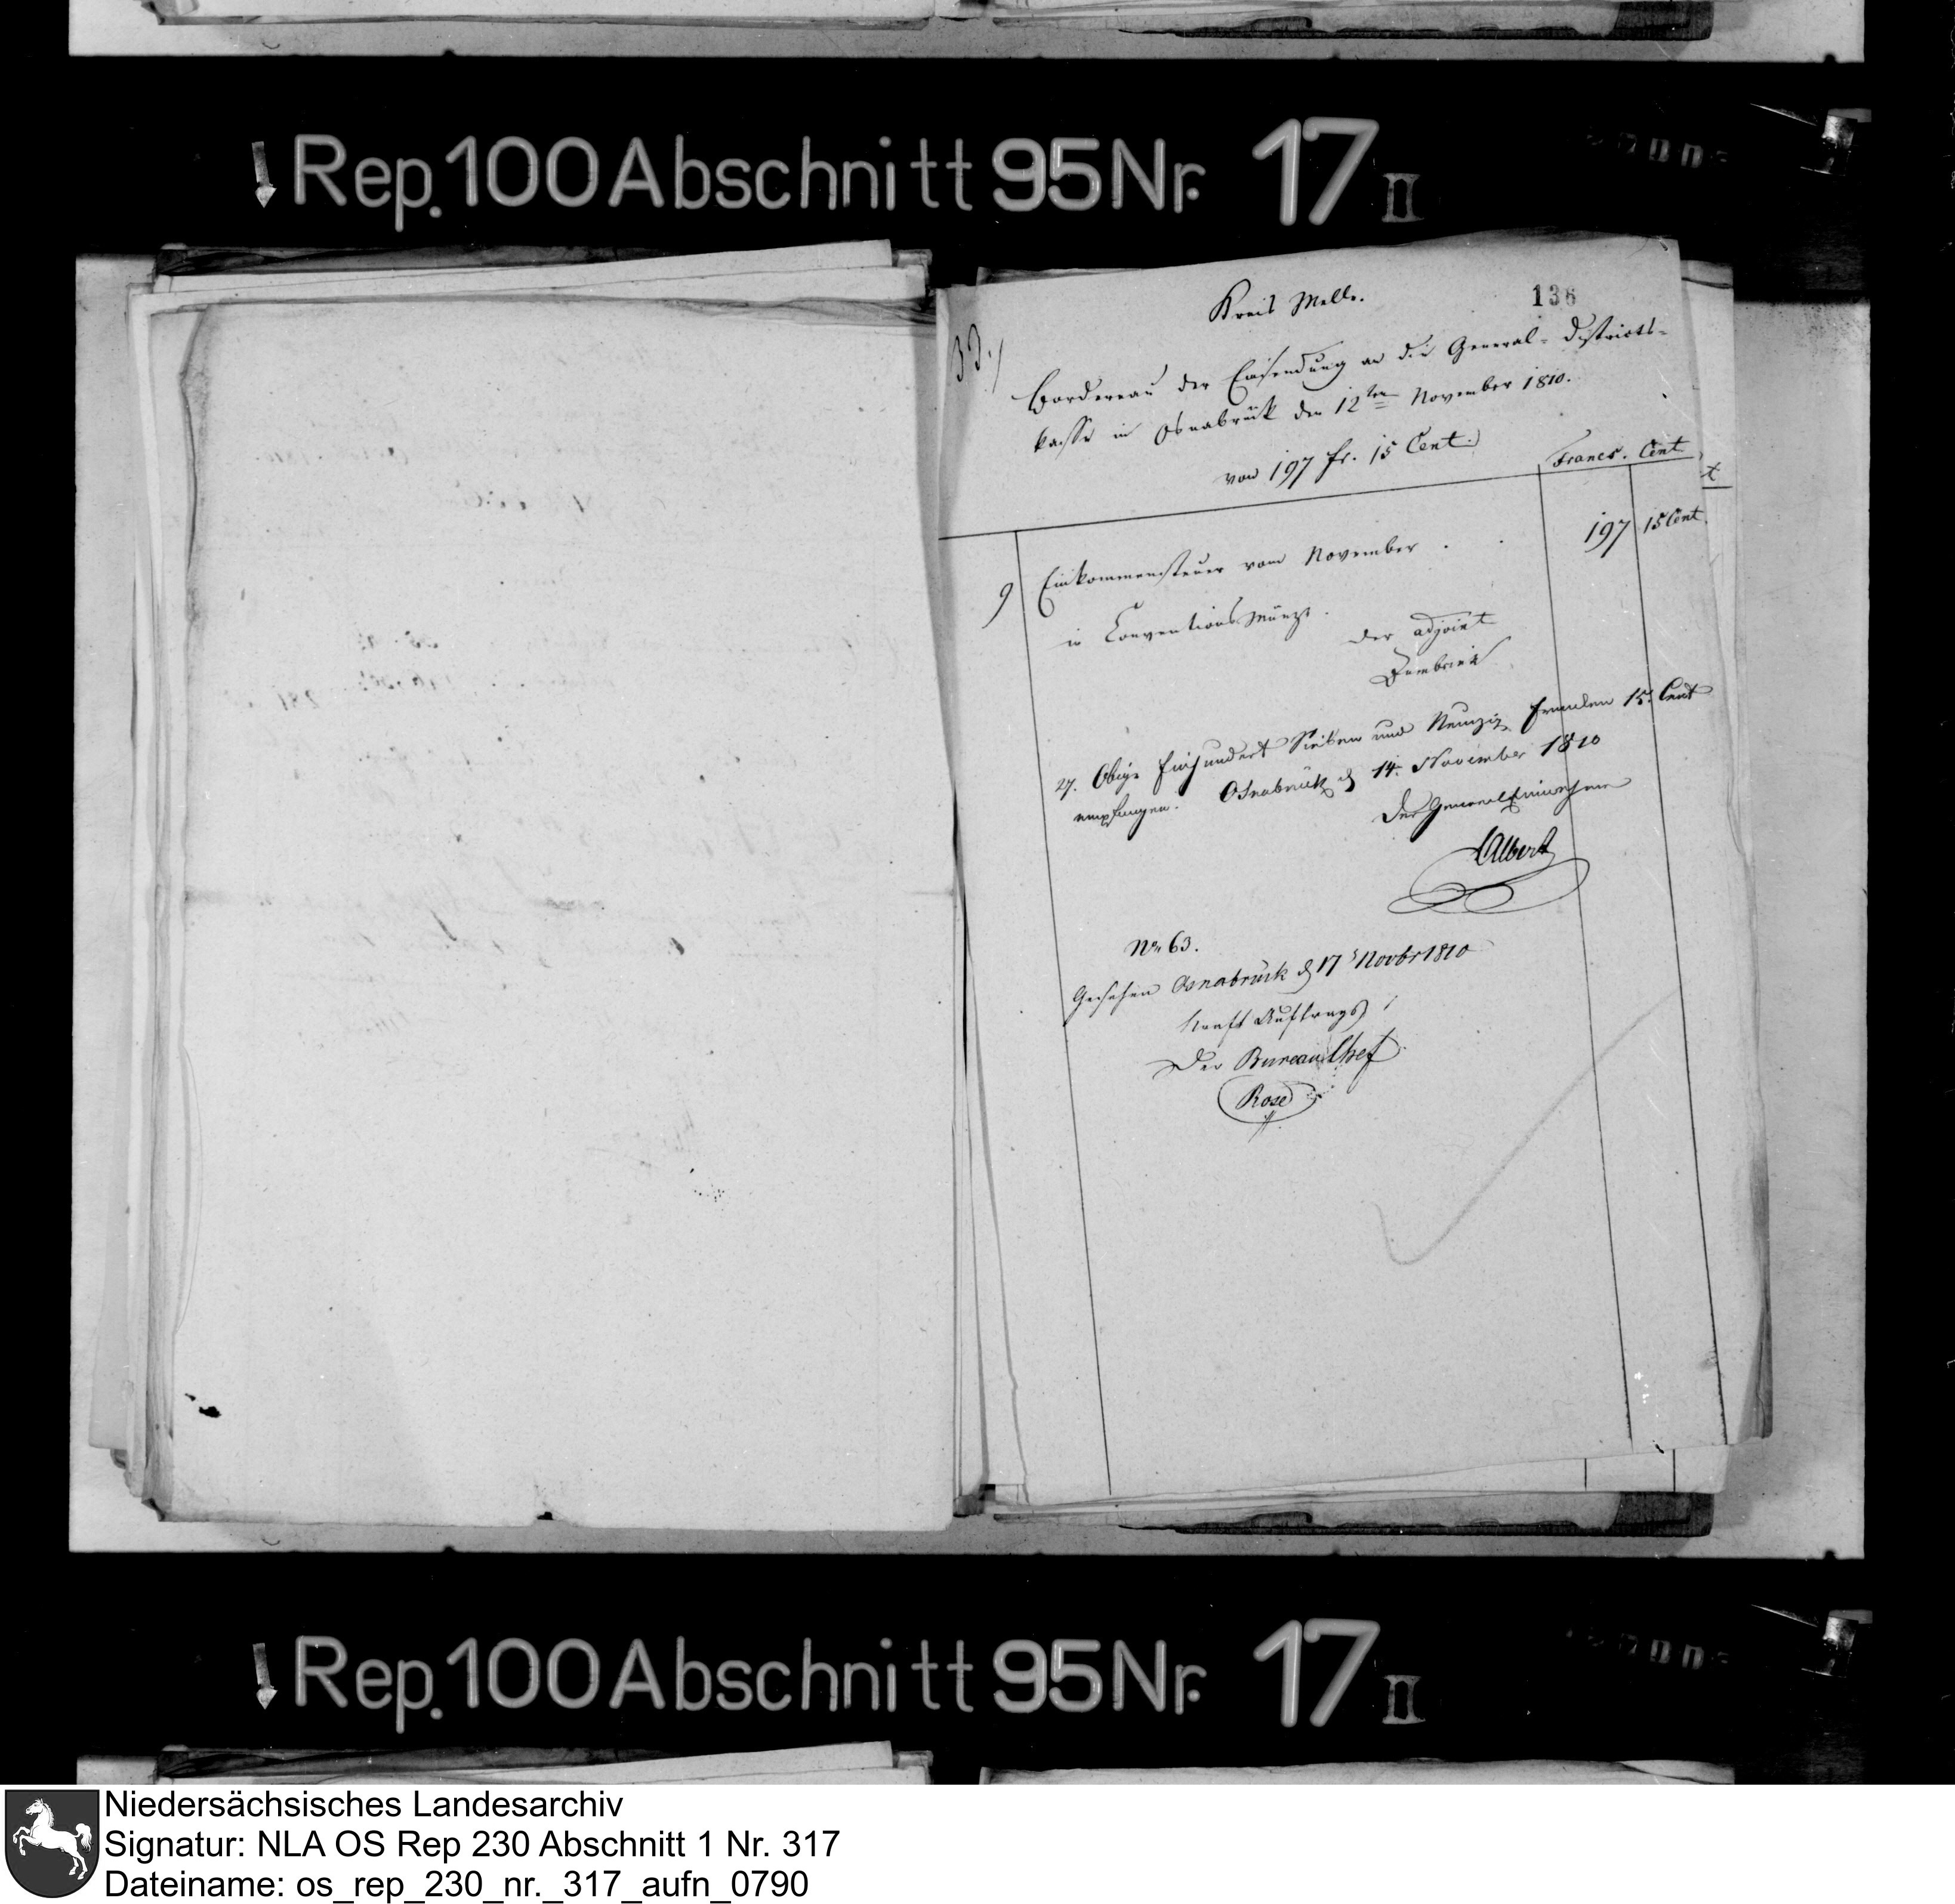 Rep. 100 Abschnitt 95 Nr. 17 II
136
33./
Kreis Melle.
Bordereau der Einsendung an die General-Districts-
kasse in Osnabrück den 12ten November 1810.
von 197 fr. 15 Cent.
Francs. Cent
9 Einkommensteuer vom November . . 197 15 Cent.
in ConventionsMünze.
Der adjoint
Obige Einhundert Sieben und Neunzig Franken 15. Cent
empfangen. Osnabrück d 14. November 1810
Der GeneralEinnehmer
Albert
No 63.
Gesehen Osnabrück d 17 Novbr 1810
Kraft Auftrags
Der Bureau Chef
Rose
Rep. 100 Abschnitt 95 Nr. 17 II
Niedersächsisches Landesarchiv
Signatur: NLA OS Rep 230 Abschnitt 1 Nr. 317
Dateiname: os_rep_230_nr._317_aufn_0790